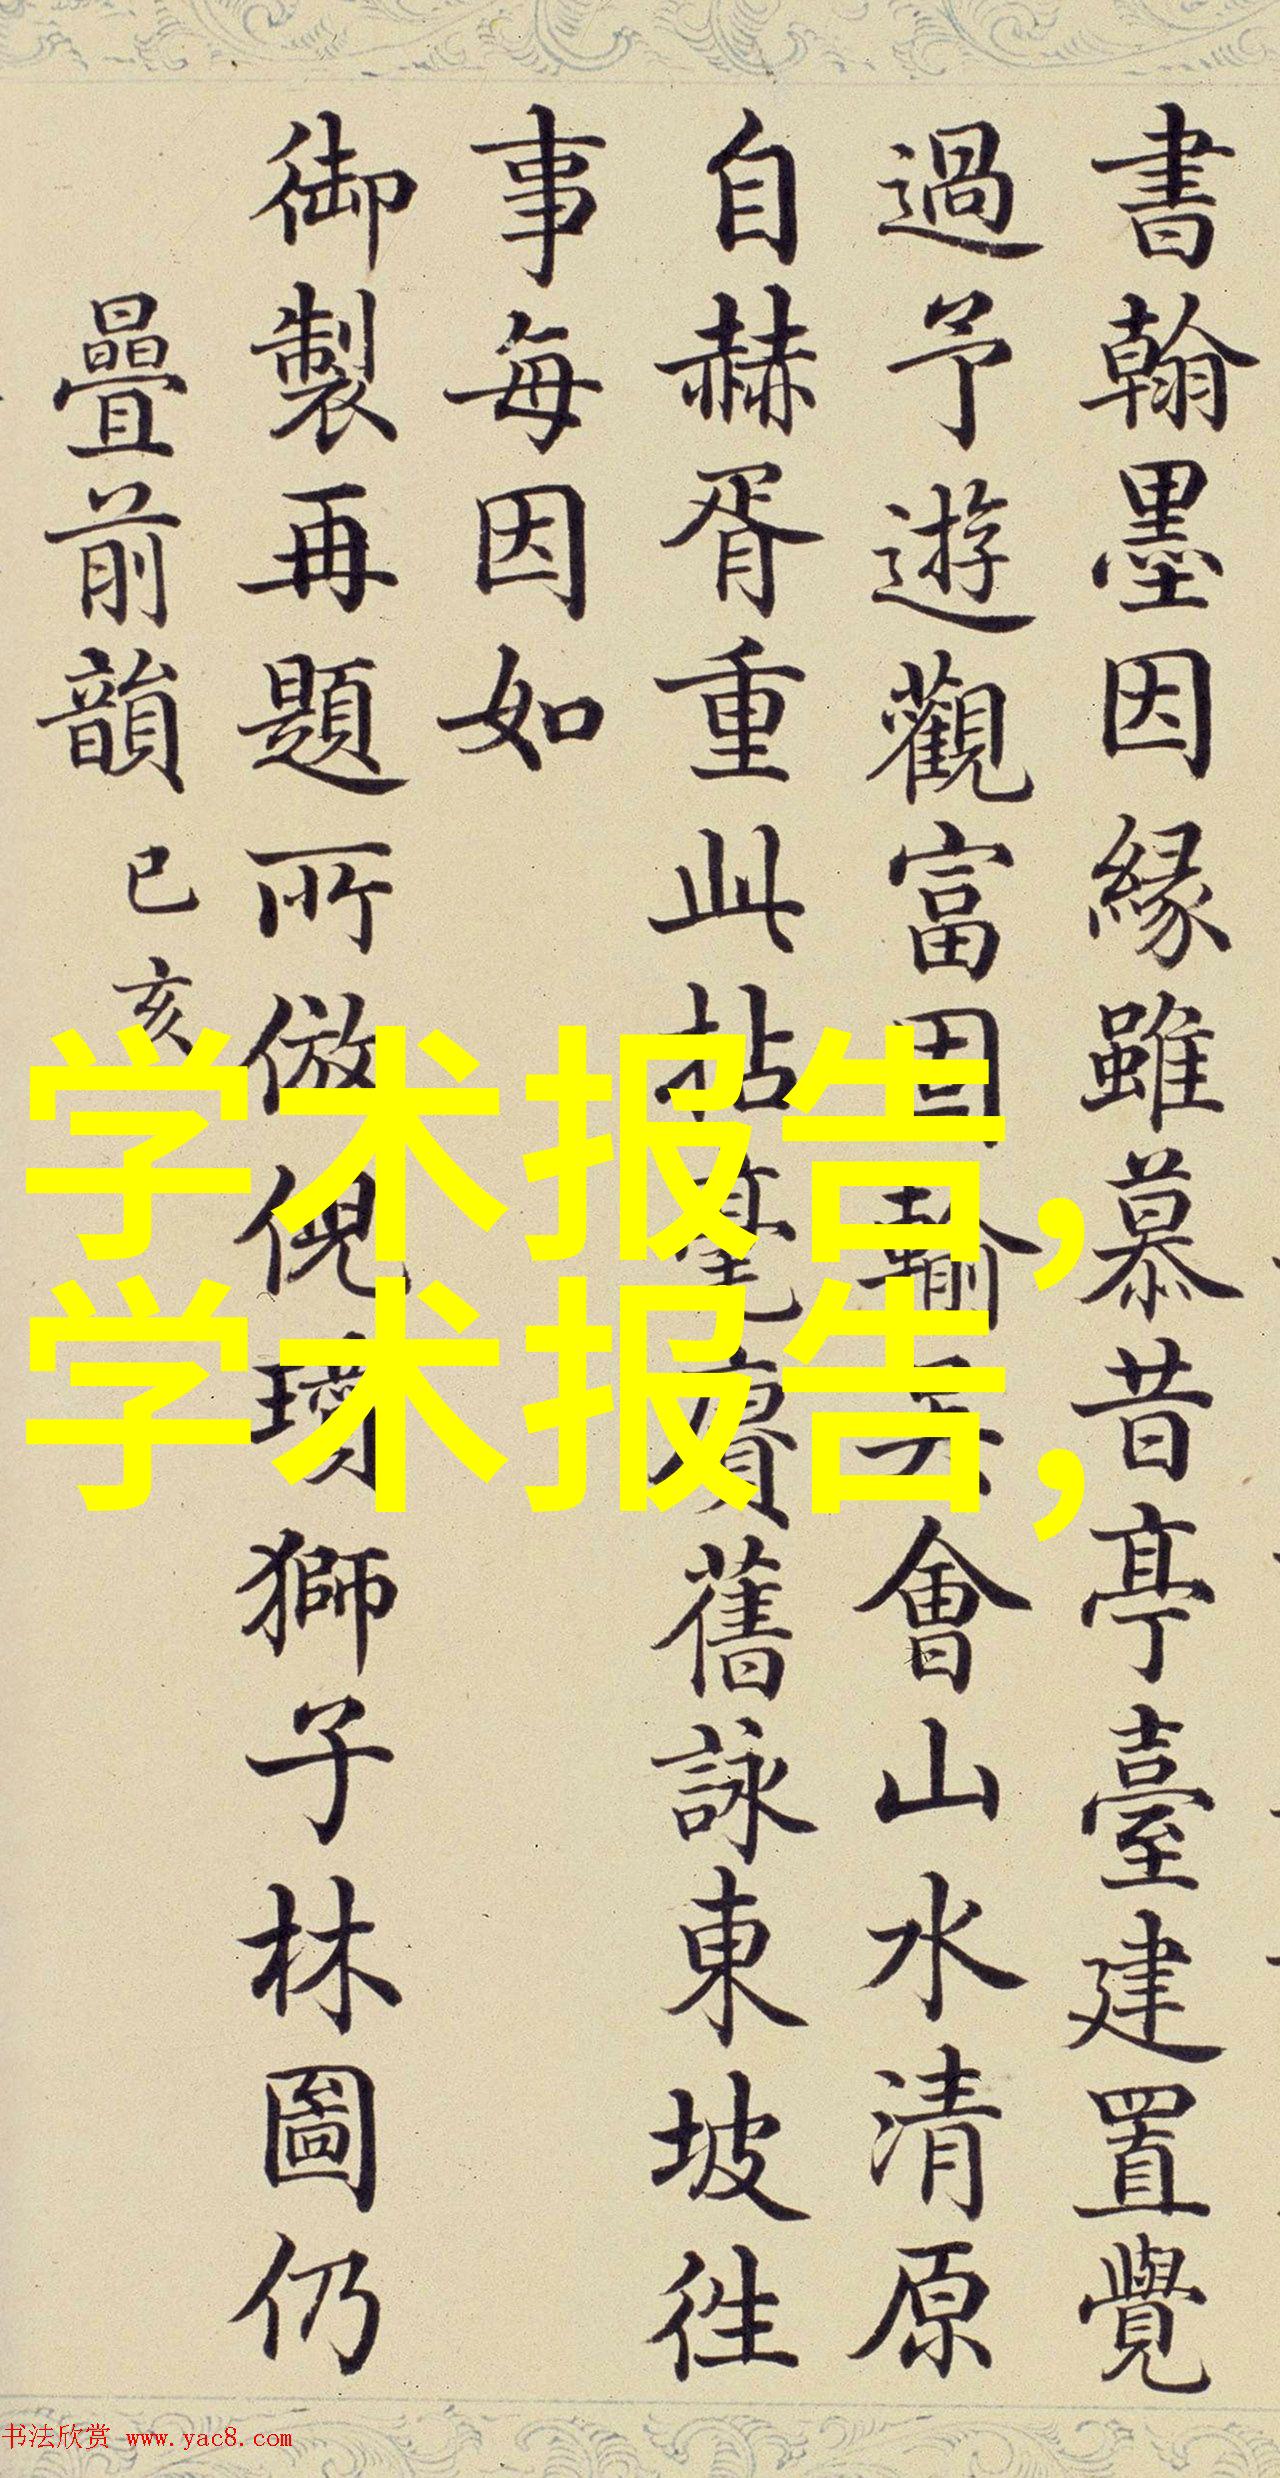 書翰墨因緣雖慕昔亭臺建置覺
過予遊觀富因輸會山水清原
自赫胥重此拈毫賡舊詠東坡往
事每因如
御製再題所倣倪瓚獅子林圖仍
疊前韻 己亥
学术报告,
学术报告,
书法欣赏 www.yac8.com